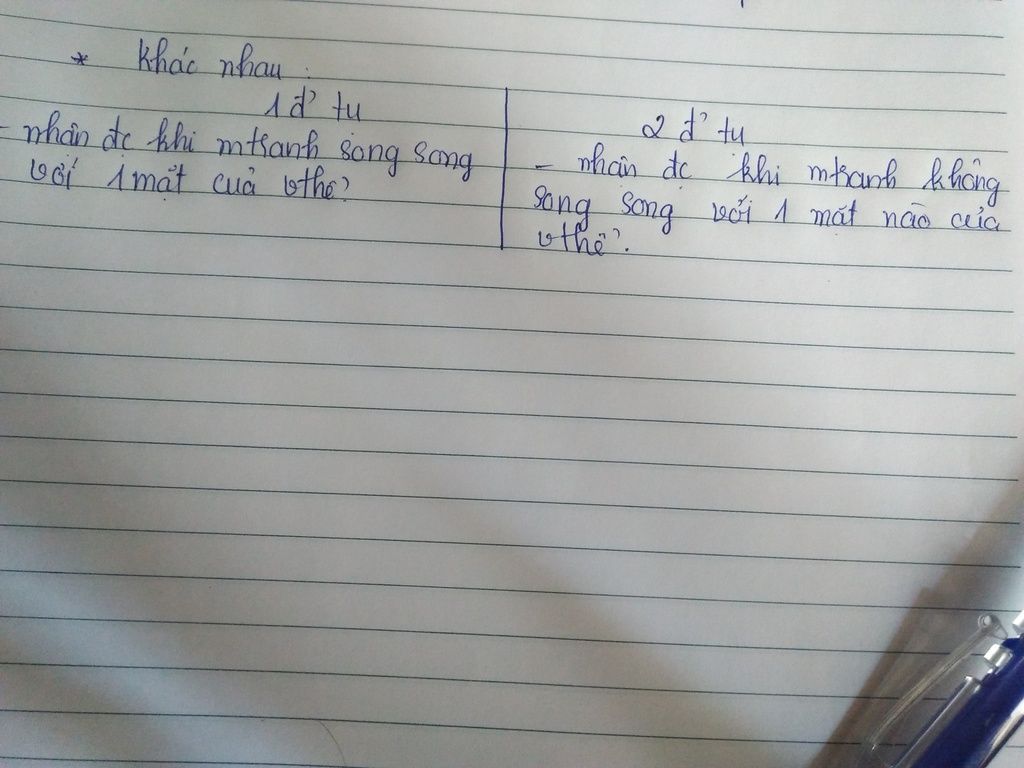 * khác nhau :
1 đ' tụ
- nhận đc khi mtranh song song
với 1 mặt của vthể
2 đ' tụ
- nhận đc khi mtranh không
song song với 1 mặt nào của
vthể.